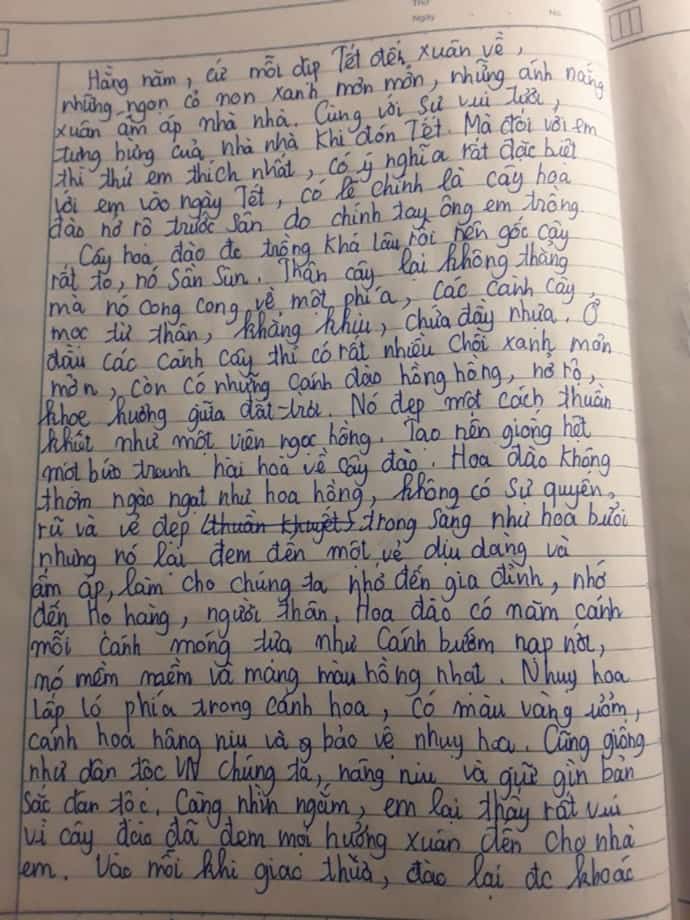 Thứ
Ngày
No.
Hằng năm, cứ mỗi dịp Tết đến xuân về,
những ngọn cỏ non xanh mơn mởn, những ánh nắng
xuân ấm áp nhà nhà. Cùng với sự vui tươi,
tưng bừng của nhà nhà khi đón Tết. Mà đối với em
thì thứ em thích nhất, có ý nghĩa rất đặc biệt
với em vào ngày Tết, có lẽ chính là cây hoa
đào nở rộ trước sân do chính tay ông em trồng.
Cây hoa đào đc trồng khá lâu rồi nên gốc cây
rất to, nó sần sùn. Thân cây lại không thẳng
mà nó cong cong về một phía, các cành cây
mọc từ thân, khẳng khiu, chứa đầy nhựa. Ở
đầu các cành cây thì có rất nhiều chồi xanh mơn
mởn, còn có những cánh đào hồng hồng, nở rộ,
khoe hương giữa đất trời. Nó đẹp một cách thuần
khiết như một viên ngọc hồng. Tạo nên giống hệt
một bức tranh hài hoà về cây đào. Hoa đào không
thơm ngào ngạt như hoa hồng, không có sự quyến
rũ và vẻ đẹp (thuần khuyết) trong sáng như hoa bưởi
nhưng nó lại đem đến một vẻ dịu dàng và
ấm áp, làm cho chúng ta nhớ đến gia đình, nhớ
đến họ hàng, người thân. Hoa đào có năm cánh
mỗi cánh mỏng tựa như cánh bướm
nó mềm mềm và mang màu hồng nhạt. Nhụy hoa
lấp ló phía trong cánh hoa, có màu vàng ươm,
cánh hoa nâng niu và bảo vệ nhụy hoa. Cũng giống
như dân tộc VN chúng ta, nâng niu và giữ gìn bản
sắc dân tộc. Càng nhìn ngắm, em lại thấy rất vui
vì cây đào đã đem mọi hương xuân đến cho nhà
em. Vào mỗi khi giao thừa, đào lại đc khoác